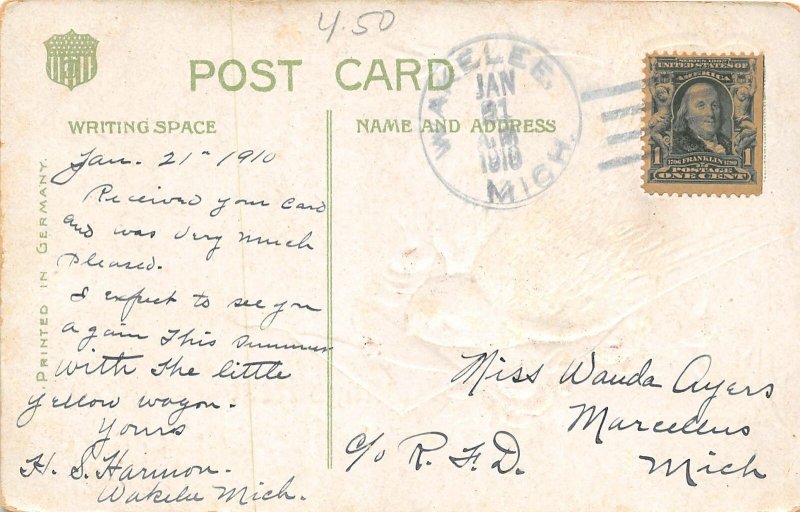 4.50
POST CARD
WAKELEE,
JAN
21
1910
MICH.
SERIES 1902
UNITED STATES OF
AMERICA
1706 FRANKLIN 1790
1 1
POSTAGE
ONE CENT
WRITING SPACE
NAME AND ADDRESS
PRINTED IN GERMANY.
Jan. 21st 1910
Received your card
and was very much
pleased.
I expect to see you
again this summer
with the little
yellow wagon.
Yours
H. S. Harmon.
Wakelee Mich.
Miss Wanda Ayers
Marcellus
c/o R. F. D.
Mich